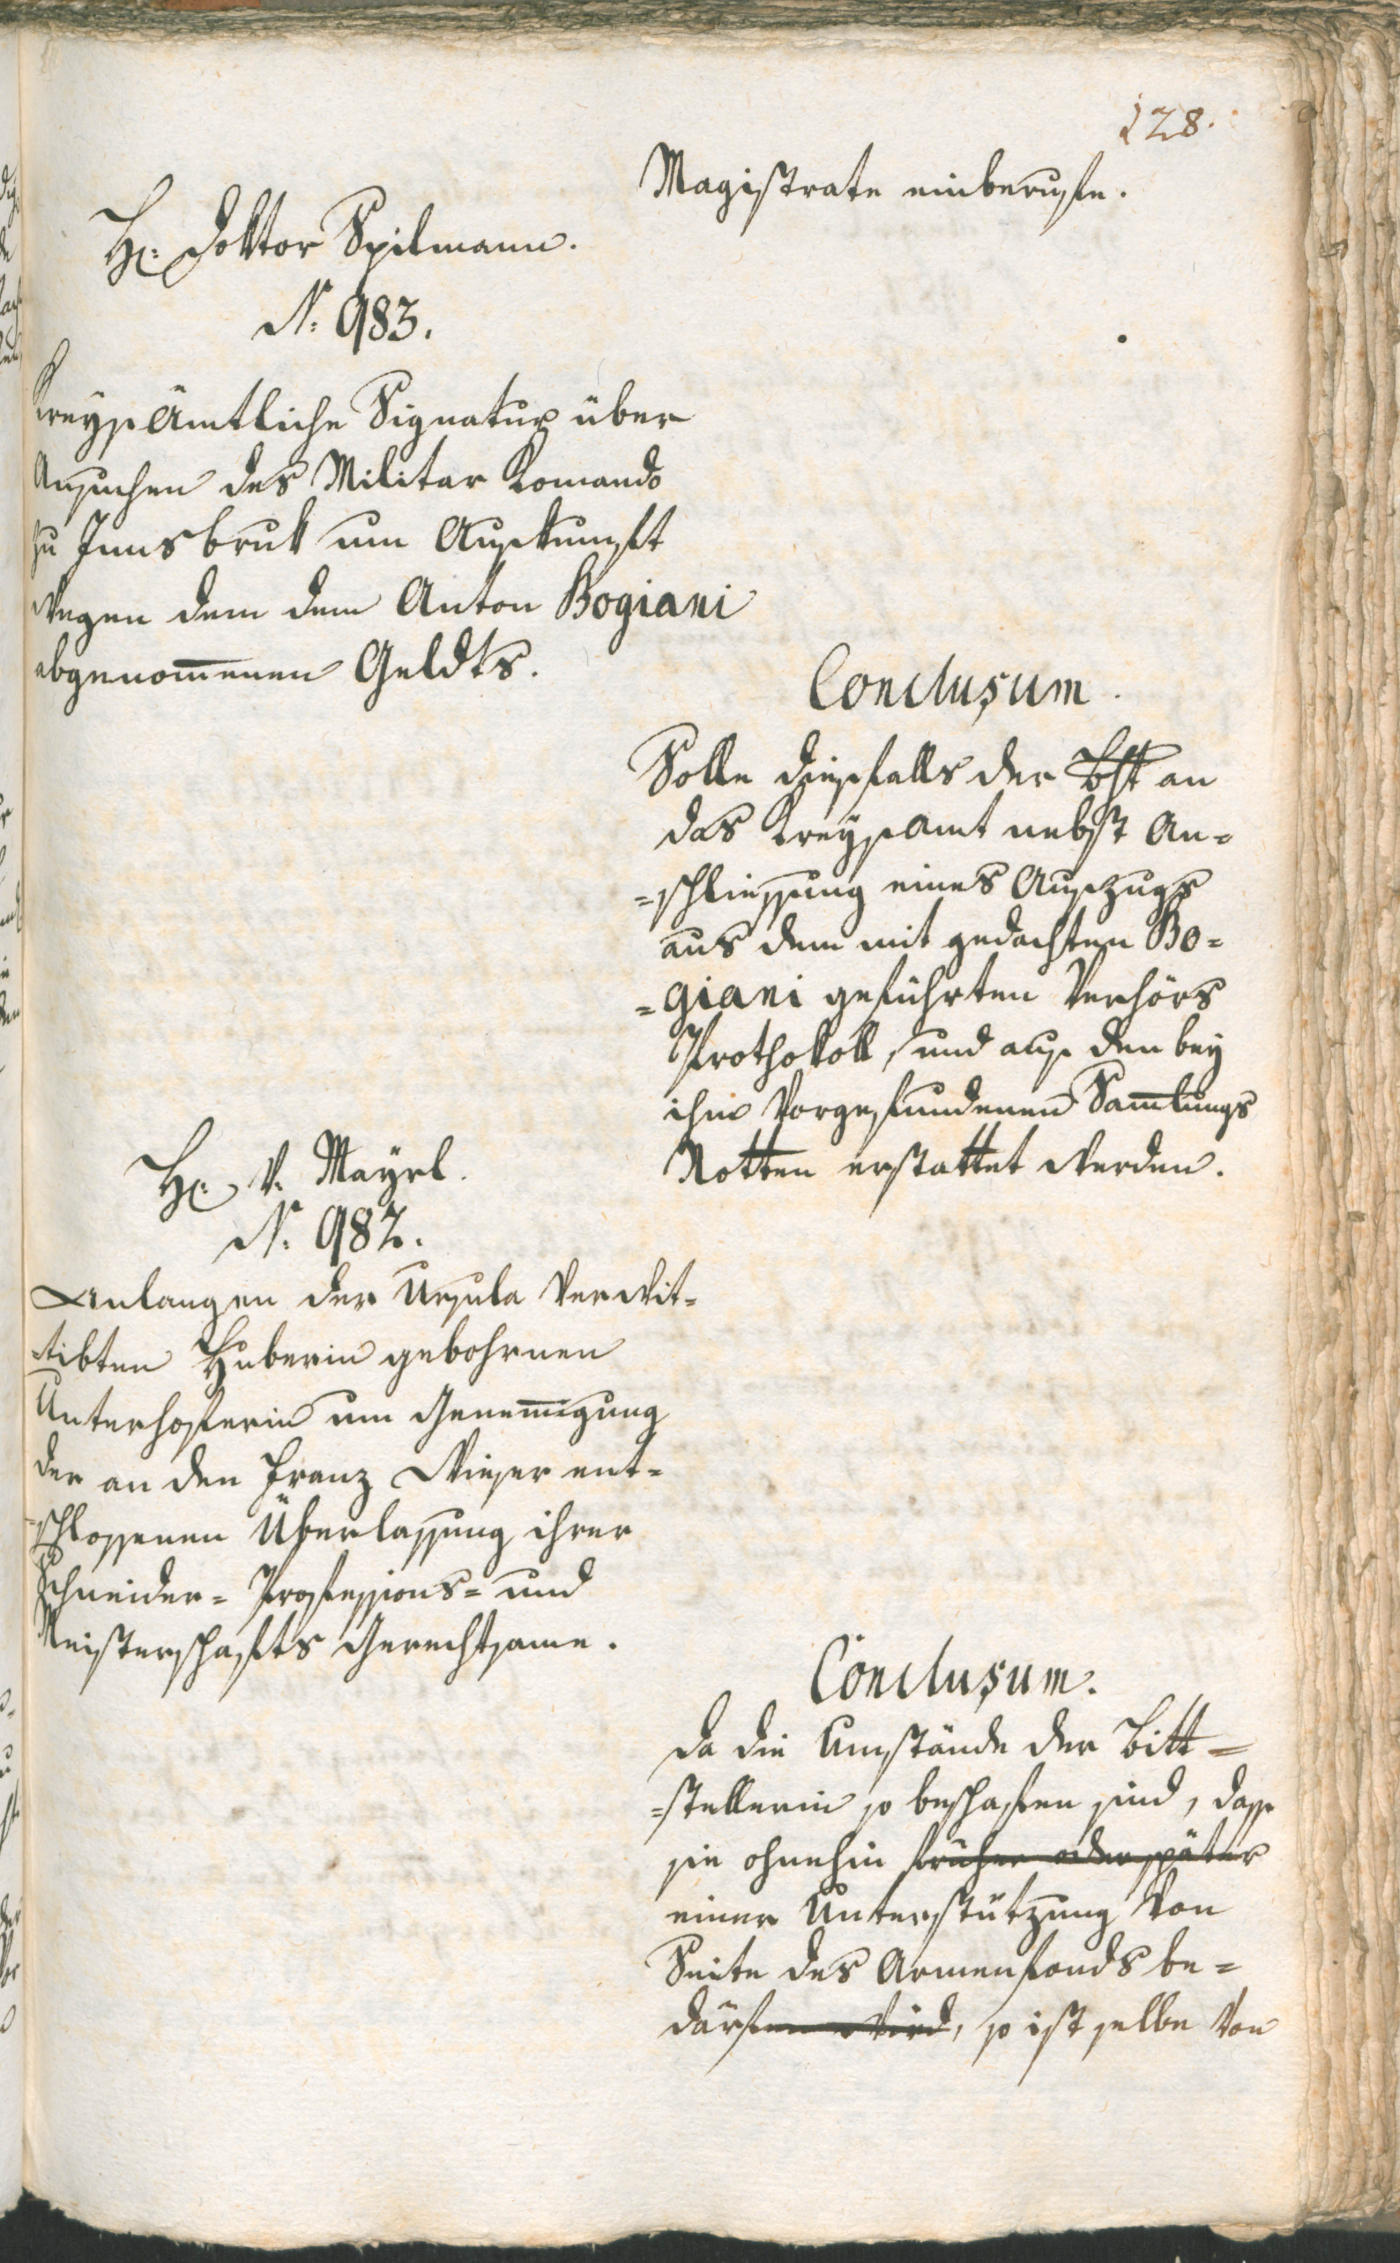 128.
Magistrate einberuffe.
H: Doktor Spilmann.
N: 983.
Kreysämtliche Signatur über
Ansuchen des Militar Komando
zu Innsbruk um Auskunft
wegen dem dem Anton Bogiani
abgenom̅enen Geldts.
Conclusum.
Solle diesfalls der Bht an
das Kreysamt nebst An=
=schliessung eines Auszugs
aus dem mit gedachten Bo=
=giani geführten Verhörs
Prothokoll, und aus den bey
ihm Vorgefundenen Sam̅lungs
Notten erstattet werden.
H: v. Mayrl.
N: 982.
Anlangen der Ursula verwit=
=tibten Huberin gebohrnen
Unterhoferin um Genem̅igung
der an den Franz Wieser ent=
=schlossenen Überlassung ihrer
Schneider= Professions= und
Meisterschafts Gerechtsame.
Conclusum.
Da die Umstände der Bitt=
=stellerin so beschaffen sind, dass
sie ohnehin früher oder später
einer Unterstützung von
Seite des Armenfonds be=
dürfen wird, so ist selbe von